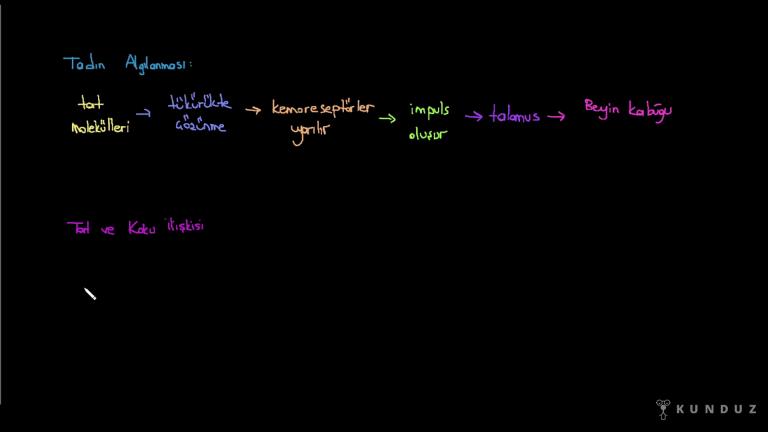 Tadın Algılanması:
tat molekülleri → tükürükte çözünme → kemoreseptörler uyarılır → impuls oluşur → talamus → Beyin kabuğu
Tat ve Koku ilişkisi
KUNDUZ